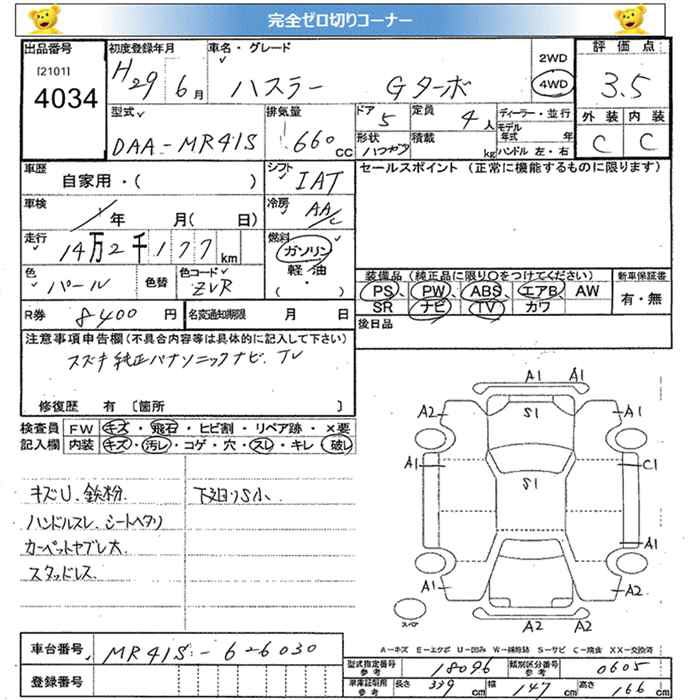 完全ゼロ切りコーナー
出品番号
[2101]
4034
初度登録年月
H29 6月
車名・グレード
ハスラー Gターボ
2WD
4WD
評価点
3.5
外装 内装
C C
型式
DAA-MR41S
排気量
660cc
ドア
5
定員
4人
形状
ハコガタ
積載
kg
ディーラー・並行
モデル年式 年
ハンドル 左・右
車歴
自家用・( )
シフト
IAT
セールスポイント (正常に機能するものに限ります)
車検
年 月( 日)
冷房
AA/C
走行
14万2千177km
燃料
ガソリン
軽・油
・( )
色
パール
色替
色コード
ZVR
装備品 (純正品に限り○をつけてください)
PS、 PW、 ABS、 エアB、 AW
SR ナビ TV カワ
新車保証書
有・無
R券
8400円
名変通知期限 月 日
後日品
注意事項申告欄(不具合内容等は具体的に記入して下さい)
スズキ純正パナソニックナビ、TV
修復歴 有 〔箇所 〕
検査員記入欄
FW キズ・飛石・ヒビ割・リペア跡・×要
内装 キズ・汚レ・コゲ・穴・スレ・キレ・破レ
キズU、鉄粉 下廻りS小、
ハンドルスレ、シートヘタリ
カーペットヤブレ大
スタッドレス
A1 A1
A2 S1 A1
A1 C1
S1
A1
A1 A2
A2 A2
スペア
A-キズ E-エクボ U-凹み W-補修跡 S-サビ C-腐食 XX-交換済
車台番号
MR41S-626030
登録番号
型式指定番号 参考
18096
類別区分番号 参考
0605
車庫証明用 参考
長さ 339cm
幅 147cm
高さ 166cm